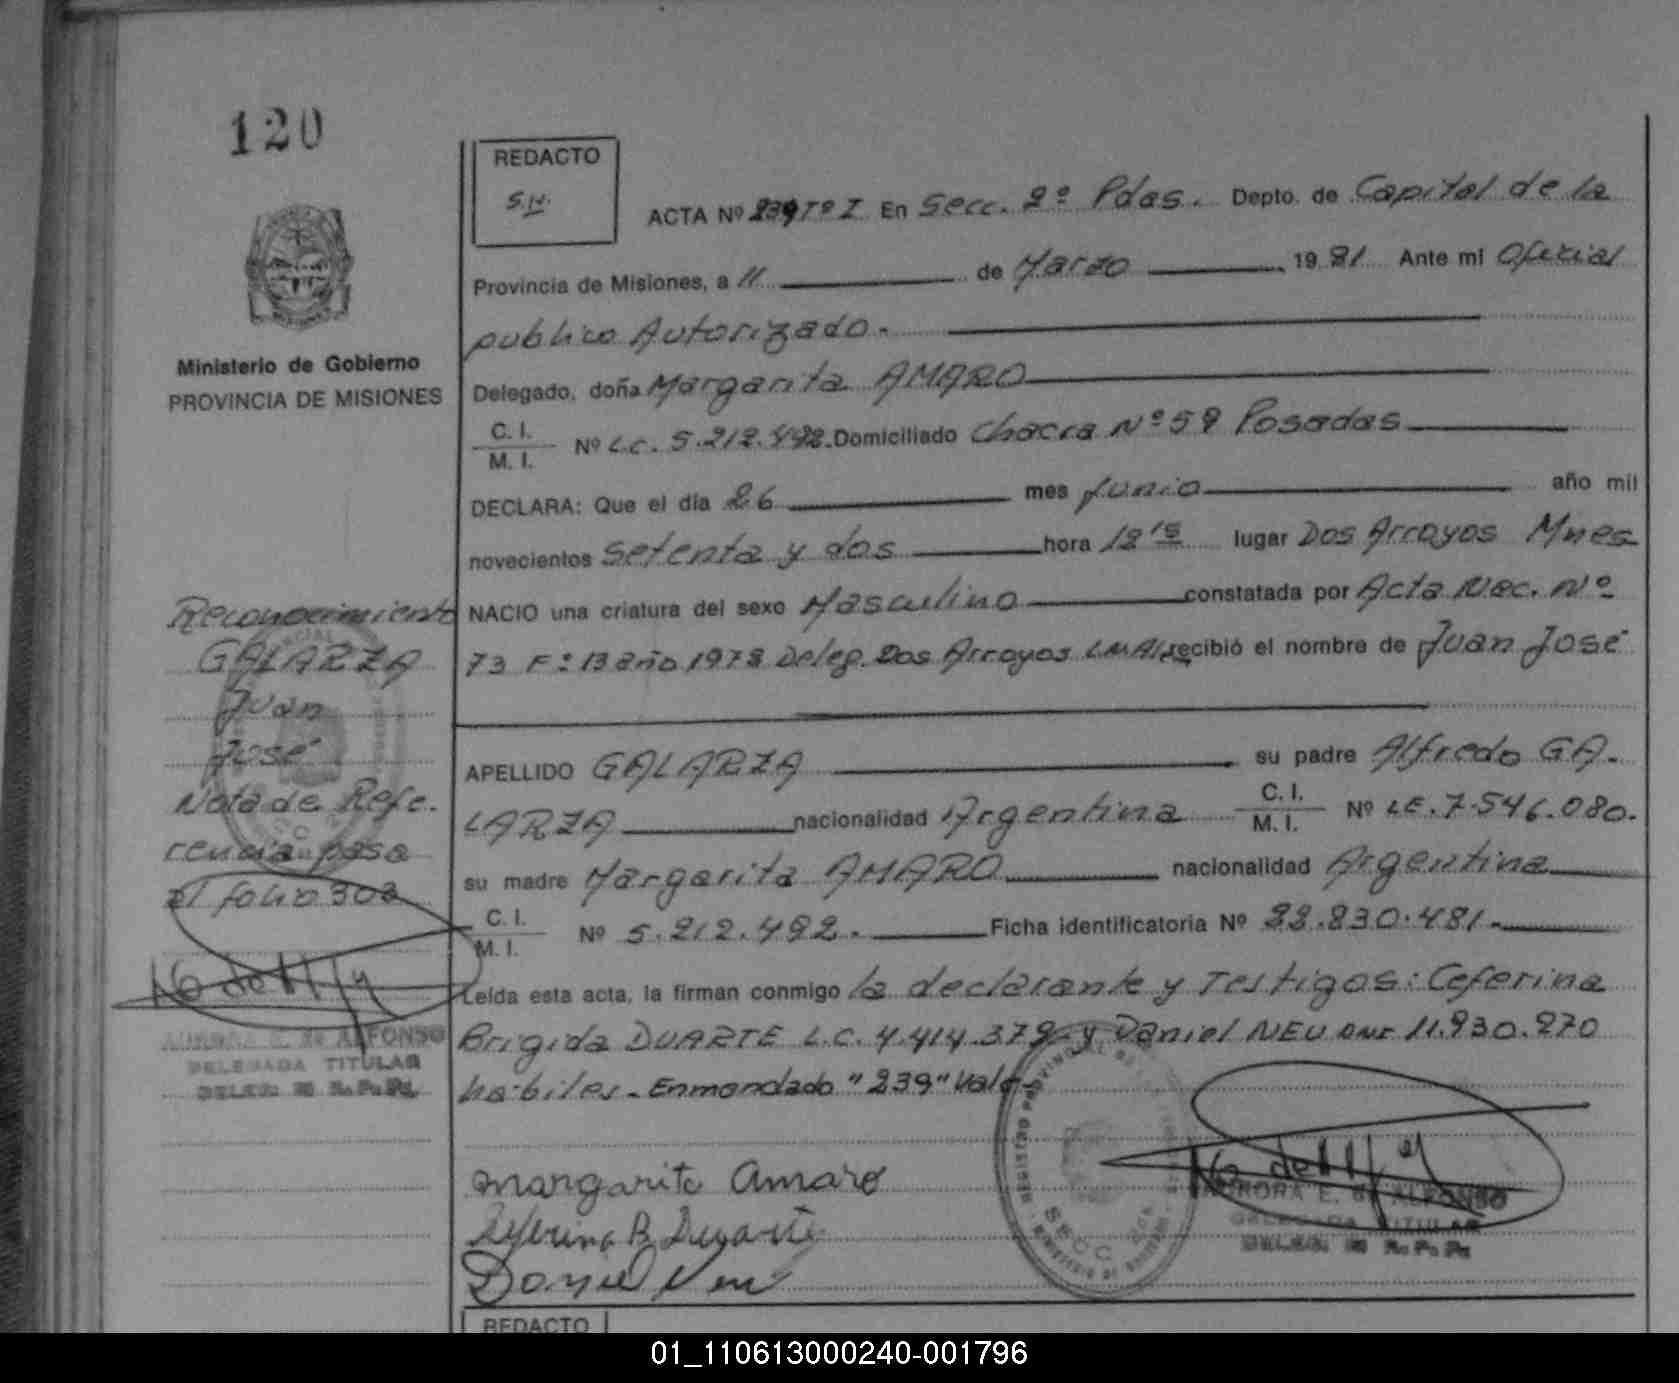 120
REDACTO
S.N.
ACTA Nº 239 Tº I En Secc. 2º Pdas. Depto. de Capital de la
Provincia de Misiones, a 11 de Marzo 1981 Ante mi Oficial
publico Autorizado.
Delegado, doña Margarita AMARO
C. I.
M. I. Nº L.C. 5.212.492. Domiciliado Chacra Nº 59 Posadas
DECLARA: Que el día 26 mes Junio año mil
novecientos setenta y dos hora 12 15 lugar Dos Arroyos Mnes
NACIO una criatura del sexo Masculino constatada por Acta Nac. Nº
73 Fº 13 año 1972 Deleg. Dos Arroyos recibió el nombre de Juan José
APELLIDO GALARZA su padre Alfredo GA-
LARZA nacionalidad Argentina C. I.
M. I. Nº LE. 7.546.080.
su madre Margarita AMARO nacionalidad Argentina
C. I.
M. I. Nº 5.212.492. Ficha identificatoria Nº 22.830.481.
Leída esta acta, la firman conmigo la declarante y Testigos: Ceferina
Brigida DUARTE L.C. 4.414.379 y Daniel NEU DNI 11.930.270
habiles. Enmendado "239" Vale
Margarita Amaro
Ceferina B. Duarte
Daniel Neu
AURORA E. de ALFONSO
DELEGADA TITULAR
DELEG. R. P. P.
Ministerio de Gobierno
PROVINCIA DE MISIONES
Reconocimiento
GALARZA
Juan
José
Nota de Refe-
rencia pasa
al folio 303
AURORA E. de ALFONSO
DELEGADA TITULAR
DELEG. R. P. P.
SECC
REDACTO
01_110613000240-001796